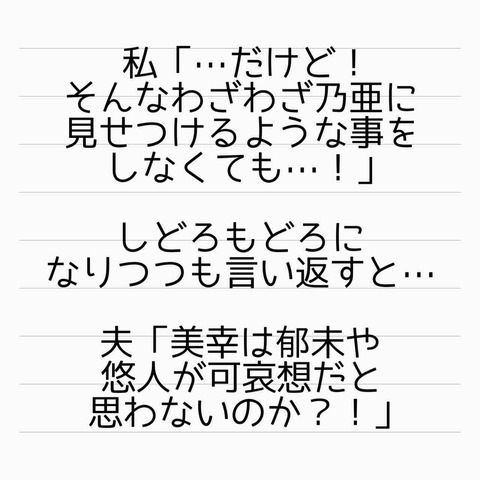 私「…だけど！
そんなわざわざ乃亜に
見せつけるような事を
しなくても…！」
しどろもどろに
なりつつも言い返すと…
夫「美幸は郁未や
悠人が可哀想だと
思わないのか？！」